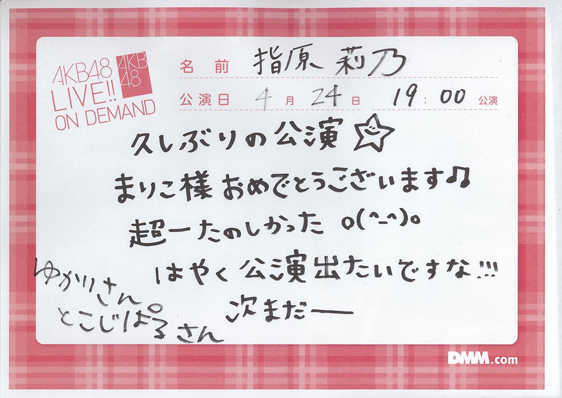 AKB48
LIVE!!
ON DEMAND
AKB
48
名前 指原 莉乃
公演日 4月24日 19:00 公演
久しぶりの公演☆
まりこ様おめでとうございます♫
超ーたのしかった o(^-^)o
はやく公演出たいですな!!!
次まだー
ゆかりさん
とこじぱるさん
DMM.com